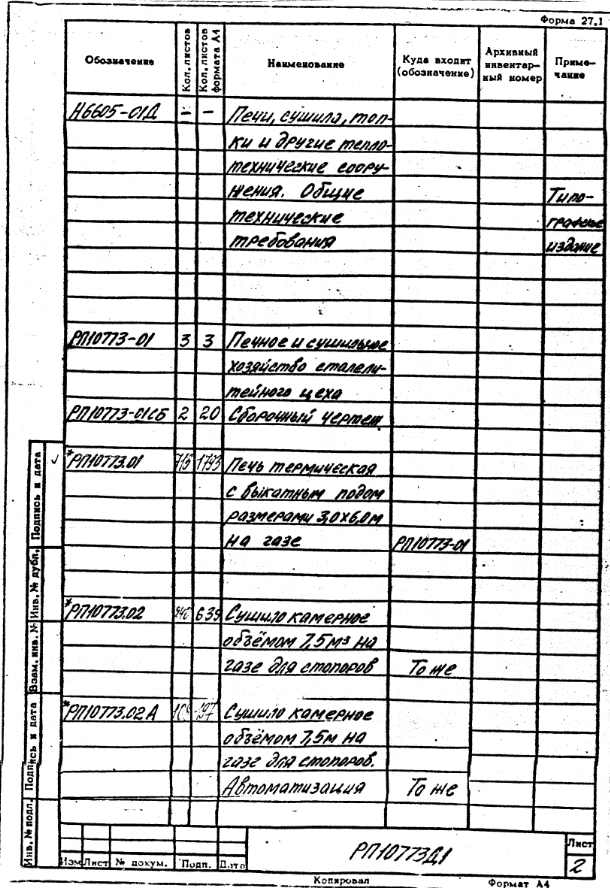 Форма 27.1
Обозначение Кол. листов Кол. листов формата А4 Наименование Куда входит (обозначение) Архивный инвентарный номер Примечание
Н6605-01Д - - Печи, сушила, топ-
ки и другие тепло-
технические соору-
жения. Общие Типо-
технические графское
требования издание
РП10773-01 3 3 Печное и сушильное
хозяйство сталели-
тейного цеха
РП10773-01СБ 2 20 Сборочный чертеж
*РП10773.01 Печь термическая
с выкатным подом
размерами 3,0х6,0м
на газе РП10773-01
*РП10773.02 639 Сушило камерное
объёмом 7,5м³ на
газе для стопоров То же
*РП10773.02А Сушило камерное
объёмом 7,5м на
газе для стопоров.
Автоматизация То же
Инв. № подл. Подпись и дата Взам. инв. № Инв. № дубл. Подпись и дата
РП10773Д1 Лист
2
Изм Лист № докум. Подп. Дата
Копировал Формат А4